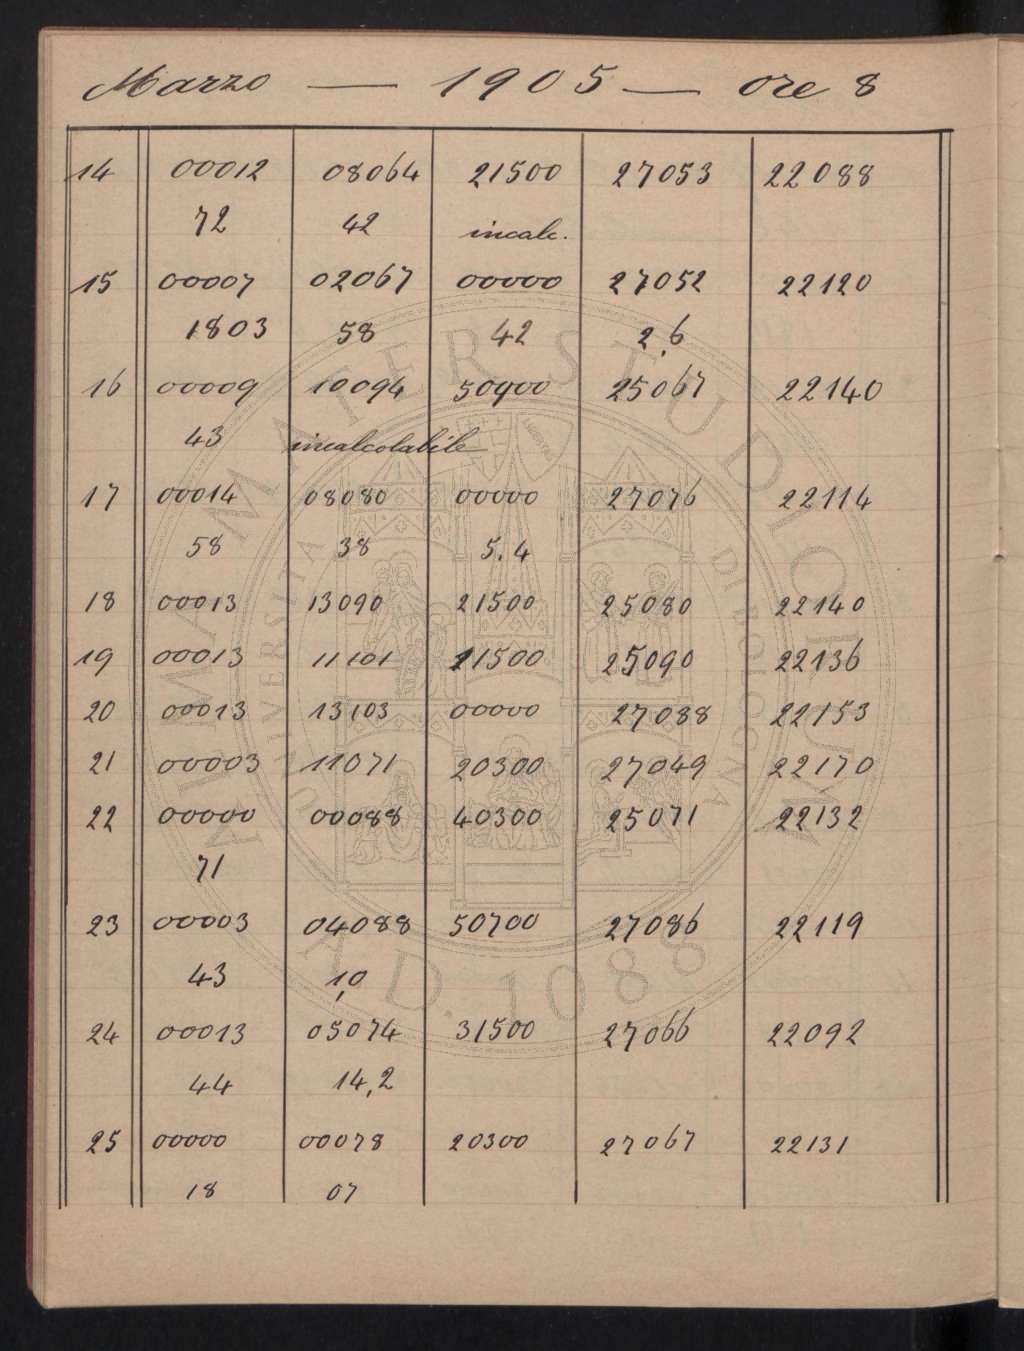 Marzo — 1905 — ore 8
14 00012 08064 21500 27053 22088
72 42 incalc.
15 00007 02067 00000 27052 22120
1803 58 42 2,6
16 00009 10094 50900 25067 22140
43 incalcolabile
17 00014 08080 00000 27076 22114
58 38 5.4
18 00013 13090 21500 25080 22140
19 00013 11101 21500 25090 22136
20 00013 13103 00000 27088 22153
21 00003 11071 20300 27049 22170
22 00000 00088 40300 25071 22132
71
23 00003 04088 50700 27086 22119
43 1,0
24 00013 05074 31500 27066 22092
44 14,2
25 00000 00078 20300 27067 22131
18 07
ALMA MATER STUDIORUM
UNIVERSITÀ DI BOLOGNA
A.D. 1088